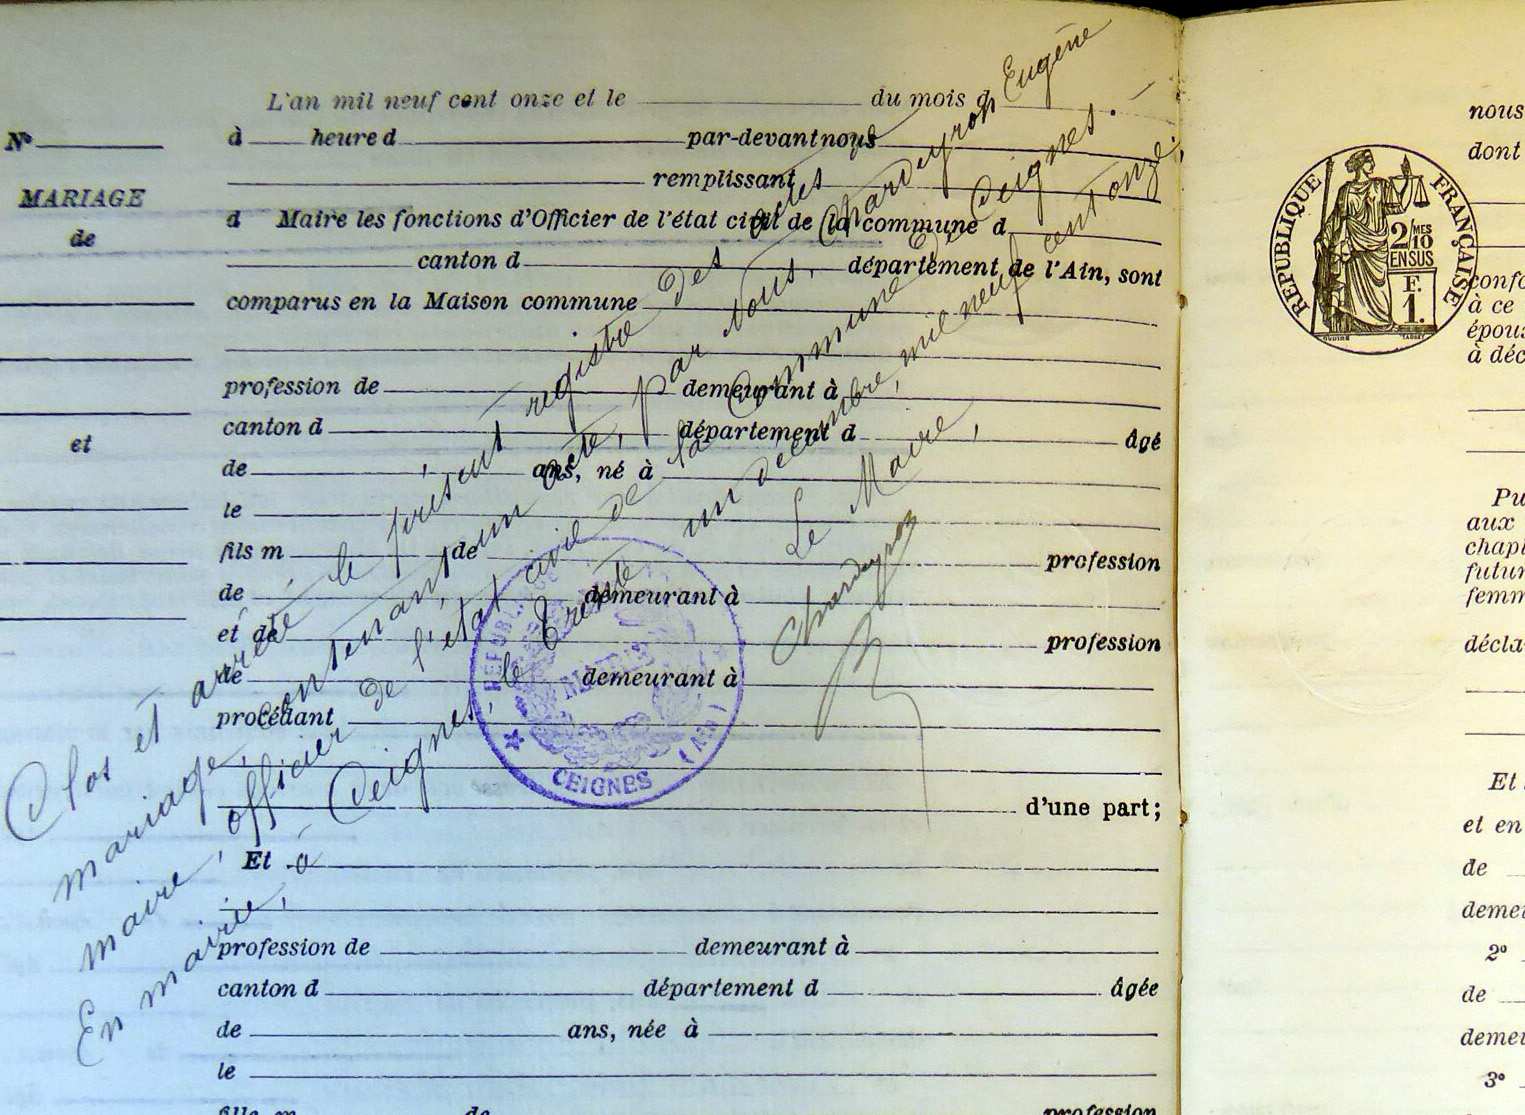 L'an mil neuf cent onze et le du mois d
N° à heure d par-devant nous
remplissant
MARIAGE
d Maire les fonctions d'Officier de l'état civil de la commune d
de
canton d département de l'Ain, sont
comparus en la Maison commune
profession de demeurant à
canton d département d âgé
et
de ans, né à
le
fils m de profession
de demeurant à
et de profession
de demeurant à
procédant
d'une part;
Et
profession de demeurant à
canton d département d âgée
de ans, née à
le
fille m de profession
Clos et arrêté le présent registre des actes de
mariage, contenant un acte, par Nous, Chardeyron Eugène
maire, officier de l'état civil de la Commune de Ceignes.
En mairie, à Ceignes, le trente un décembre, mil neuf cent onze.
Le Maire,
Chardeyron
RÉPUBLIQUE
MAIRIE
CEIGNES
(AIN)
RÉPUBLIQUE FRANÇAISE
2/10
MES
EN SUS
F.
1.
OUDINÉ
TARDET
nous
dont
confo
à ce
épous
à déc
Pu
aux
chapi
futur
femm
décla
Et
et en
de
demeu
2°
de
demeu
3°